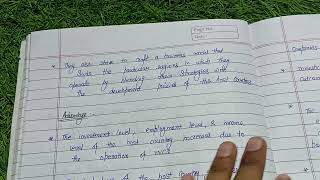 Page No.
Date:
* They also have to craft a business model that
Suits the particular regions in which they
operate by blending their strategies with
the development policies of the host countries
Advantage :
* The investment level, employment level, & income
level of the host country increases due to
the operation of MNC's
of the host country
Companies